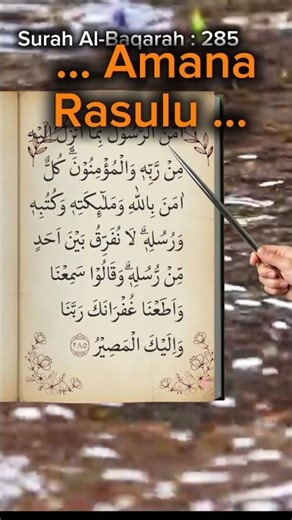 Surah Al-Baqarah : 285
... Amana
Rasulu ...
اٰمَنَ الرَّسُوْلُ بِمَآ اُنْزِلَ اِلَيْهِ
مِنْ رَّبِّهٖ وَالْمُؤْمِنُوْنَۗ كُلٌّ
اٰمَنَ بِاللّٰهِ وَمَلٰۤىِٕكَتِهٖ وَكُتُبِهٖ
وَرُسُلِهٖۗ لَا نُفَرِّقُ بَيْنَ اَحَدٍ
مِّنْ رُّسُلِهٖۗ وَقَالُوْا سَمِعْنَا
وَاَطَعْنَا غُفْرَانَكَ رَبَّنَا
وَاِلَيْكَ الْمَصِيْرُ ٢٨٥